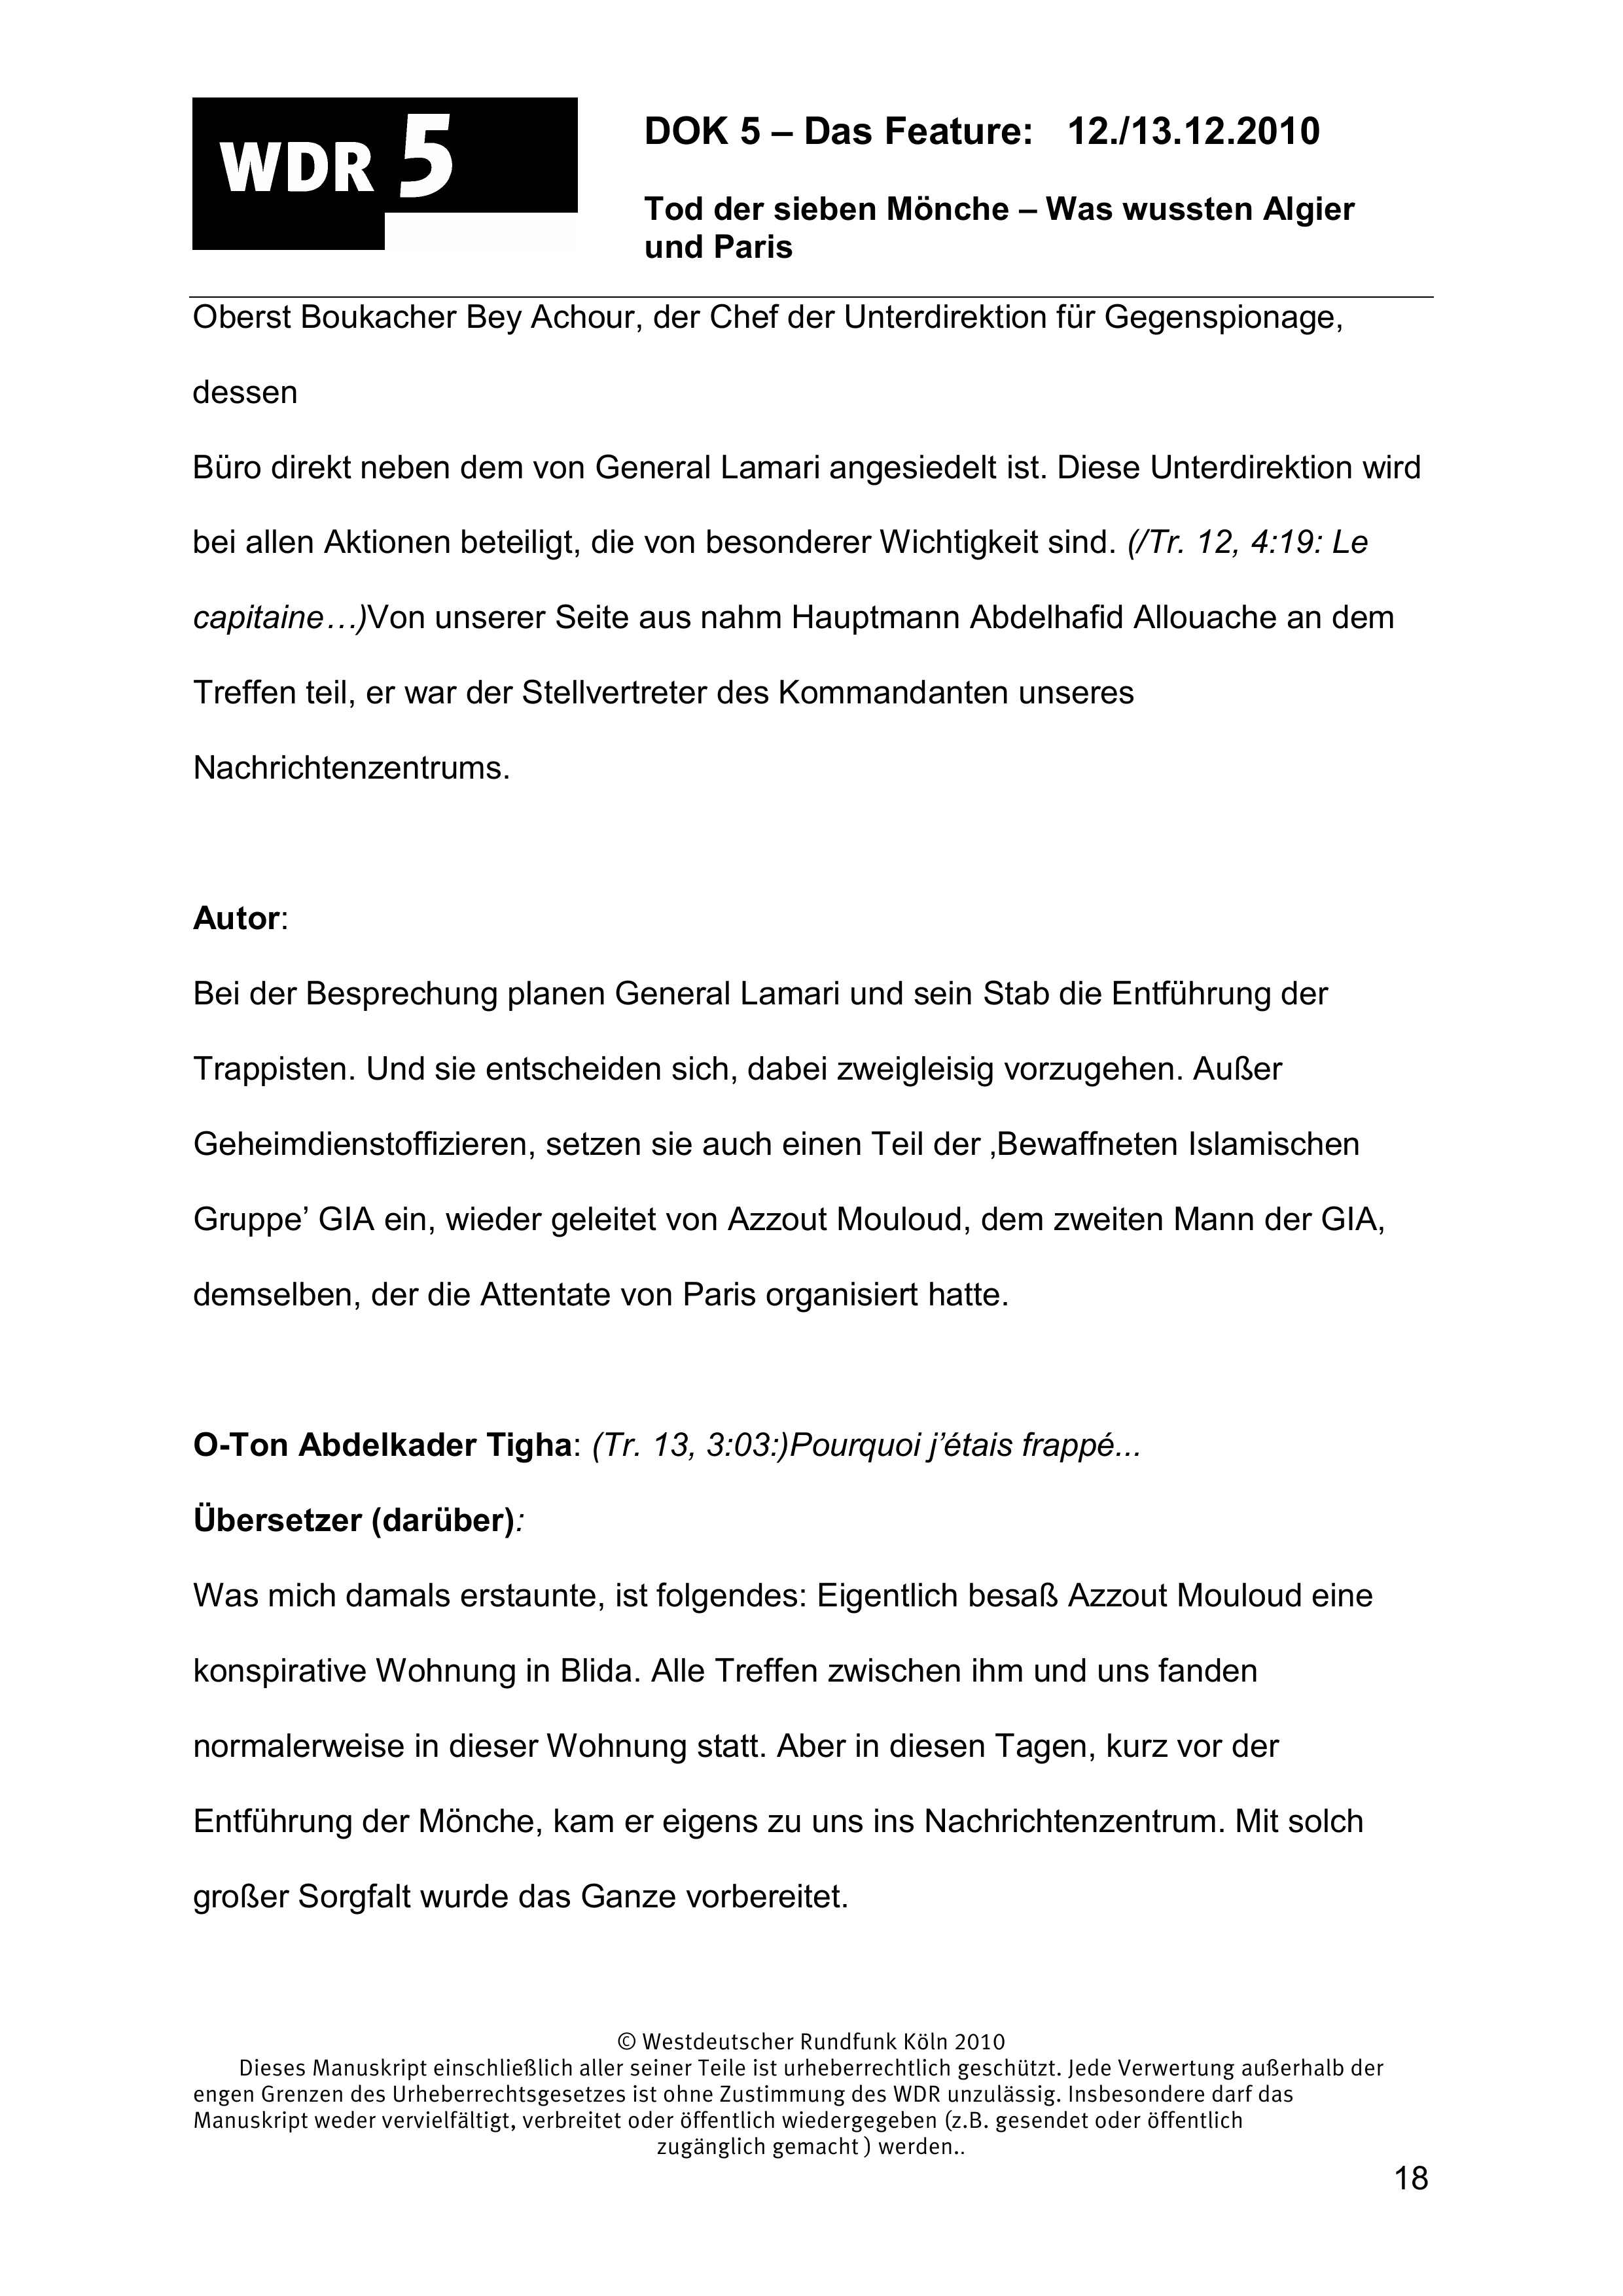 WDR 5
DOK 5 – Das Feature: 12./13.12.2010
Tod der sieben Mönche – Was wussten Algier
und Paris
Oberst Boukacher Bey Achour, der Chef der Unterdirektion für Gegenspionage,
dessen
Büro direkt neben dem von General Lamari angesiedelt ist. Diese Unterdirektion wird
bei allen Aktionen beteiligt, die von besonderer Wichtigkeit sind. (/Tr. 12, 4:19: Le
capitaine…)Von unserer Seite aus nahm Hauptmann Abdelhafid Allouache an dem
Treffen teil, er war der Stellvertreter des Kommandanten unseres
Nachrichtenzentrums.
Autor:
Bei der Besprechung planen General Lamari und sein Stab die Entführung der
Trappisten. Und sie entscheiden sich, dabei zweigleisig vorzugehen. Außer
Geheimdienstoffizieren, setzen sie auch einen Teil der ‚Bewaffneten Islamischen
Gruppe’ GIA ein, wieder geleitet von Azzout Mouloud, dem zweiten Mann der GIA,
demselben, der die Attentate von Paris organisiert hatte.
O-Ton Abdelkader Tigha: (Tr. 13, 3:03:)Pourquoi j’étais frappé...
Übersetzer (darüber):
Was mich damals erstaunte, ist folgendes: Eigentlich besaß Azzout Mouloud eine
konspirative Wohnung in Blida. Alle Treffen zwischen ihm und uns fanden
normalerweise in dieser Wohnung statt. Aber in diesen Tagen, kurz vor der
Entführung der Mönche, kam er eigens zu uns ins Nachrichtenzentrum. Mit solch
großer Sorgfalt wurde das Ganze vorbereitet.
© Westdeutscher Rundfunk Köln 2010
Dieses Manuskript einschließlich aller seiner Teile ist urheberrechtlich geschützt. Jede Verwertung außerhalb der
engen Grenzen des Urheberrechtsgesetzes ist ohne Zustimmung des WDR unzulässig. Insbesondere darf das
Manuskript weder vervielfältigt, verbreitet oder öffentlich wiedergegeben (z.B. gesendet oder öffentlich
zugänglich gemacht ) werden..
18